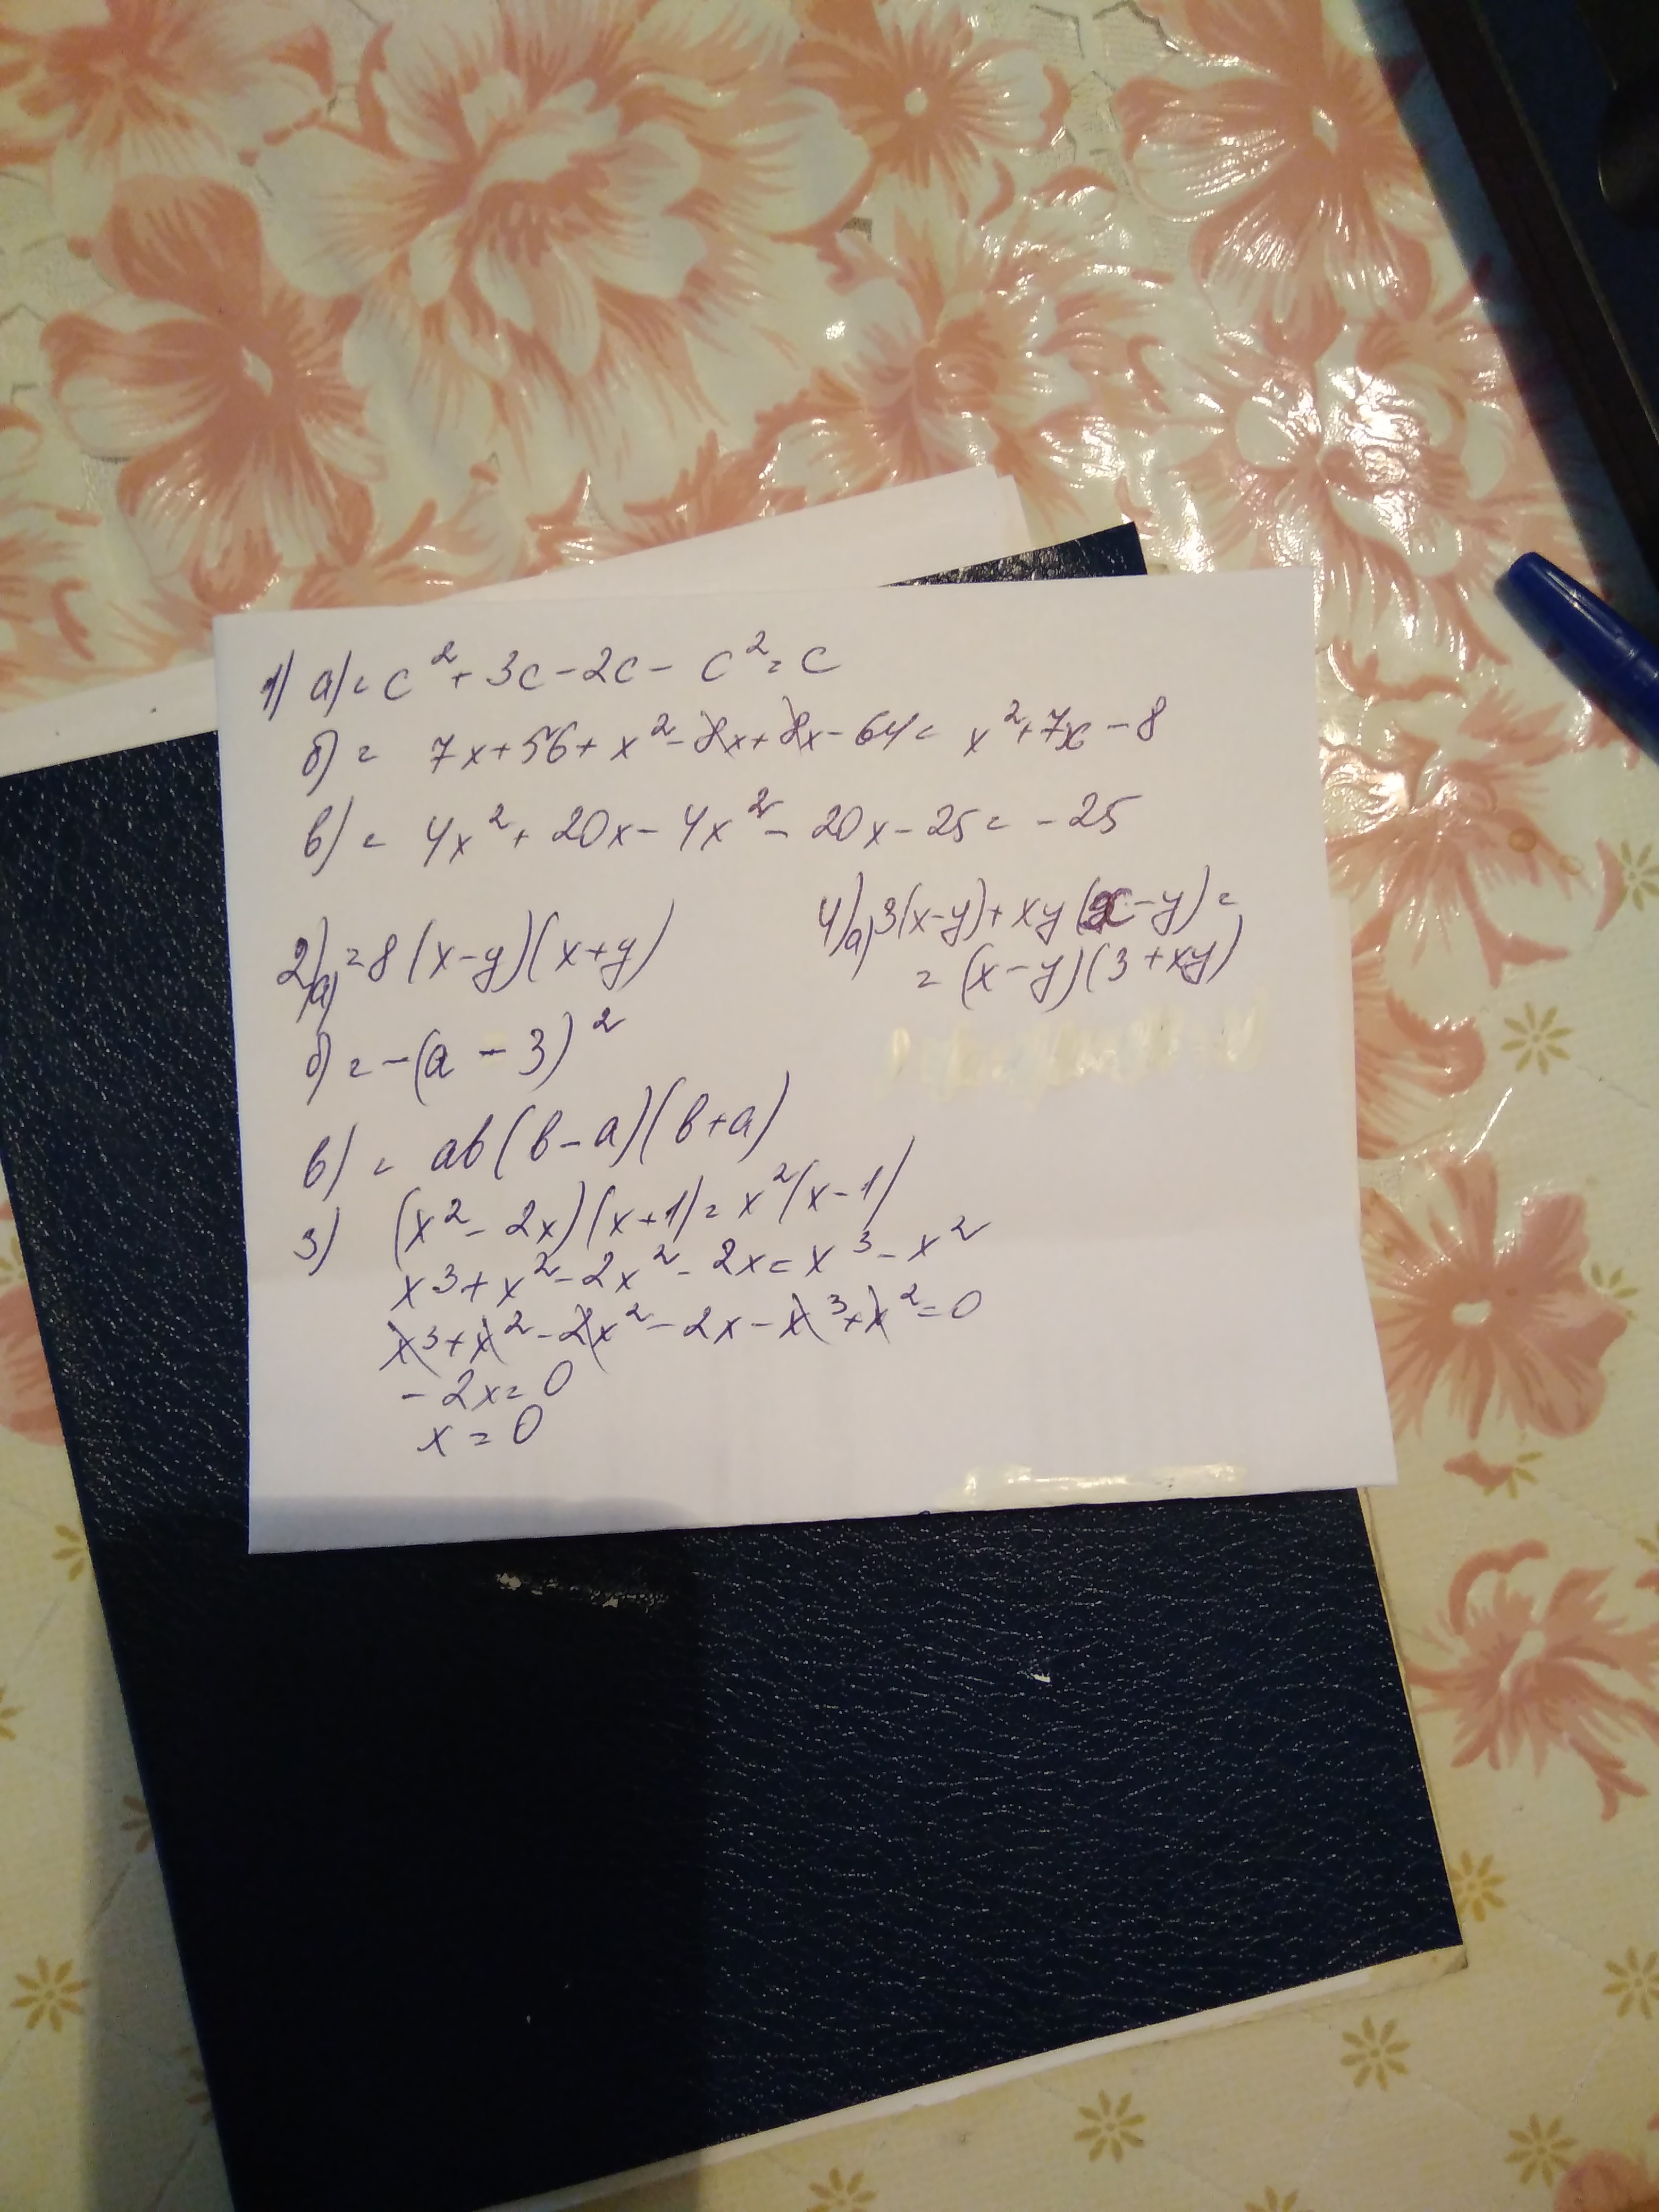 1) а) = c² + 3c - 2c - c² = c
б) = 7x + 56 + x² - 8x + 8x - 64 = x² + 7x - 8
в) = 4x² + 20x - 4x² - 20x - 25 = -25
2) а) = 8(x-y)(x+y)
б) = -(a - 3)²
в) = ab(b-a)(b+a)
3) (x² - 2x)(x+1) = x²(x-1)
x³ + x² - 2x² - 2x = x³ - x²
x³ + x² - 2x² - 2x - x³ + x² = 0
-2x = 0
x = 0
4) а) 3(x-y) + xy(x-y) =
= (x-y)(3+xy)